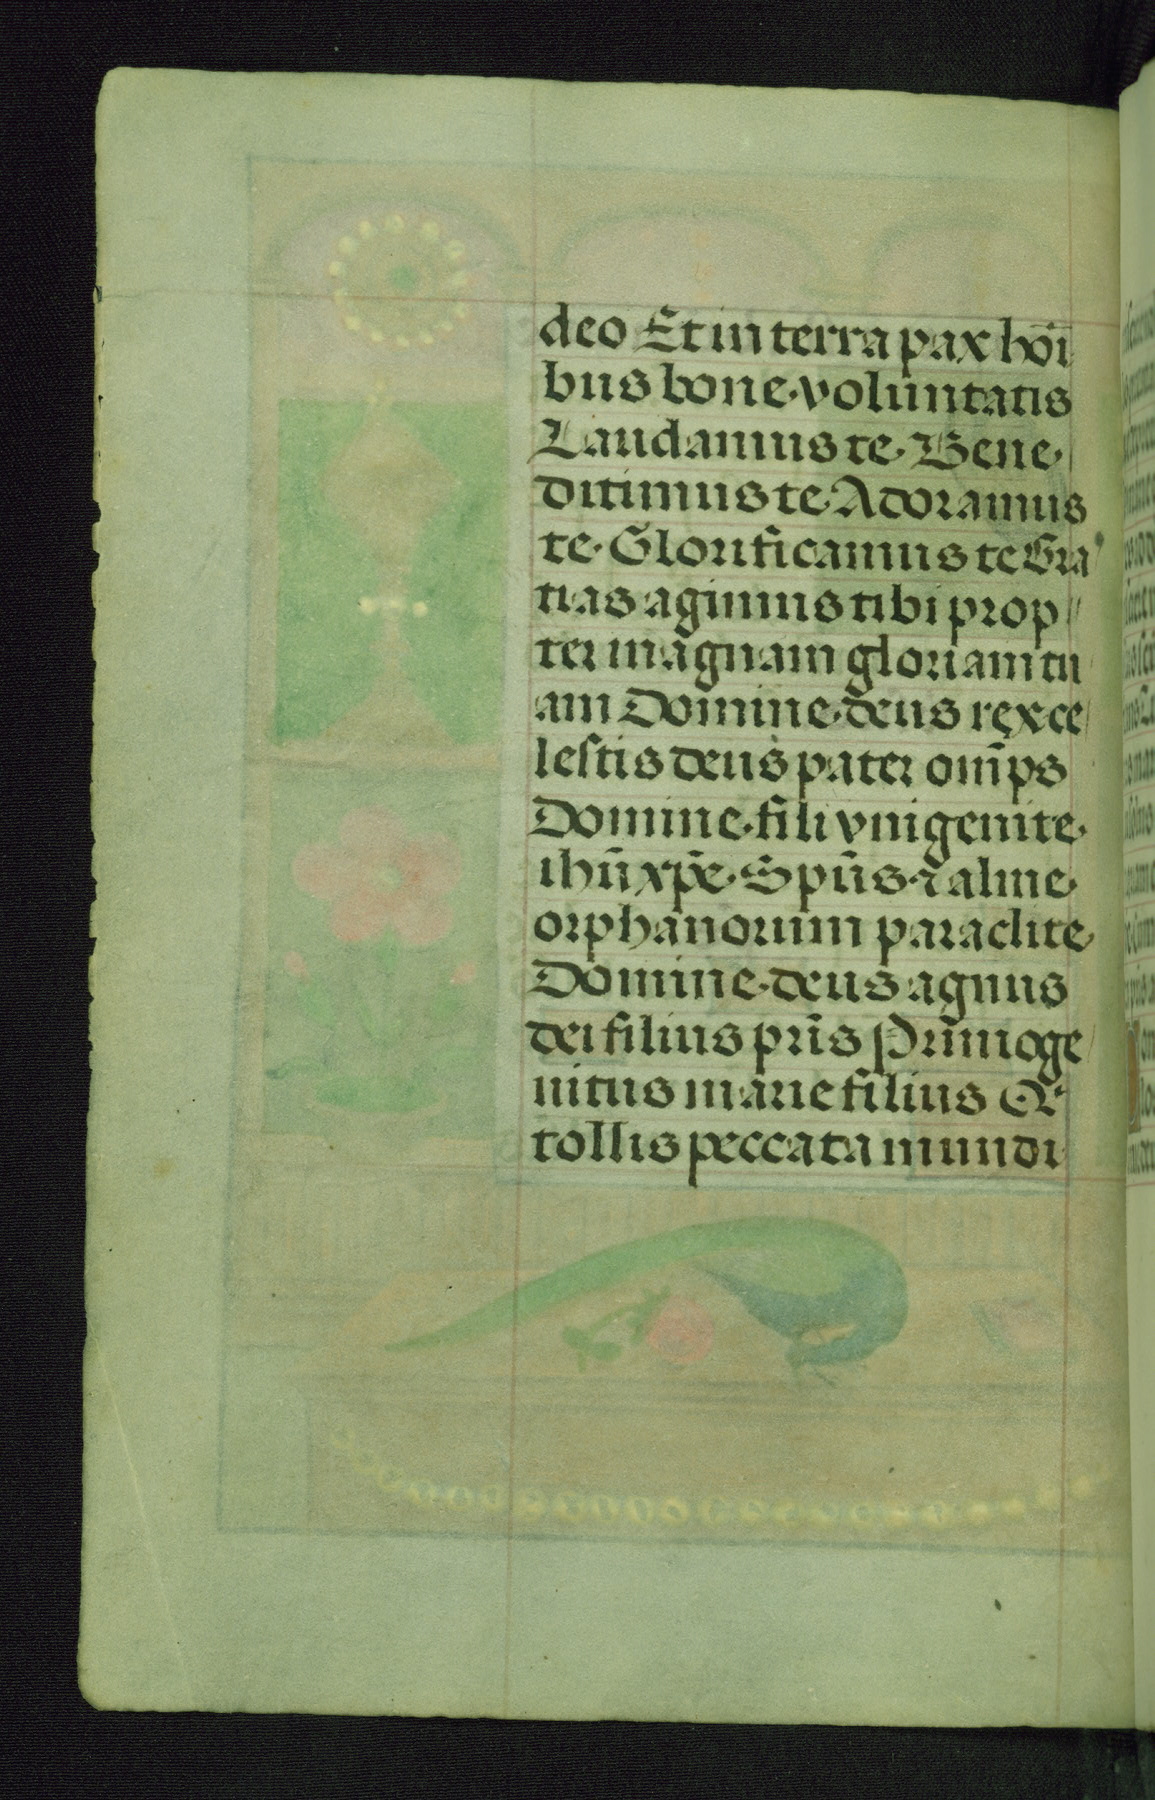 deo Et in terra pax hōi
bus bone voluntatis
Laudamus te· Bene·
dicimus te· Adoramus
te· Glorificamus te Gra
tias agimus tibi prop
ter magnam gloriam tu
am Domine· deus rex ce
lestis deus pater om̄ps
Domine· fili vnigenite·
ihū xp̄e· Spūs· ⁊ alme·
orphanorum paraclite·
Domine· deus agnus
dei filius pr̄is Prīmoge
nitus marie filius Q
tollis peccata mundi